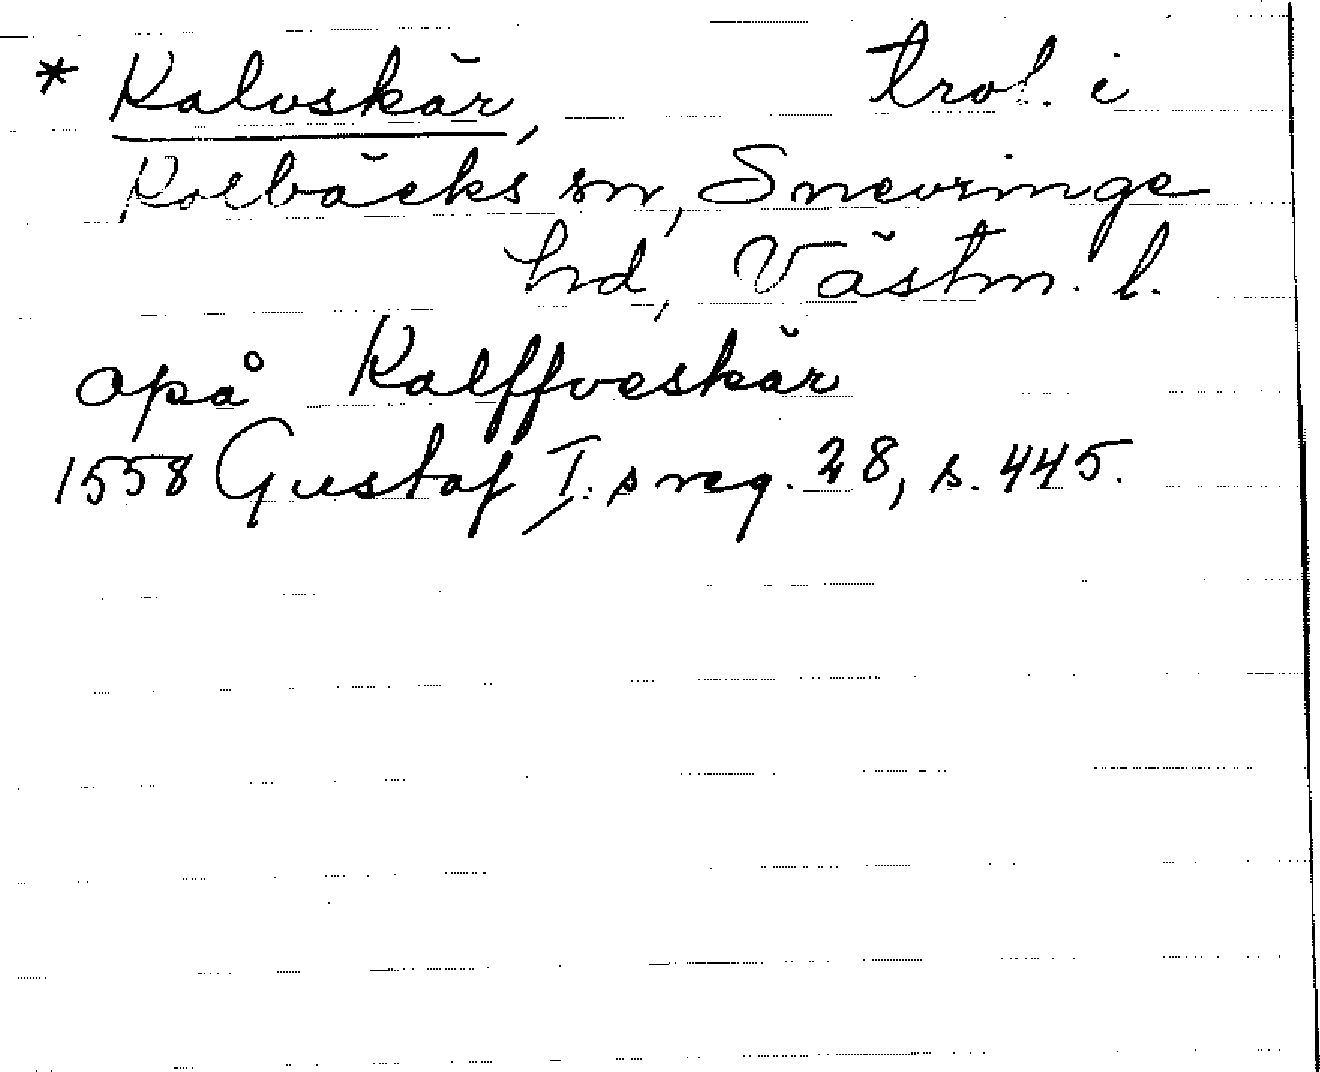 * Kalvskär, trol. i
Kolbäcks sn, Snevringe
hd, Västm. l.
opå Kalffveskär
1558 Gustaf I:s reg. 28, s. 445.